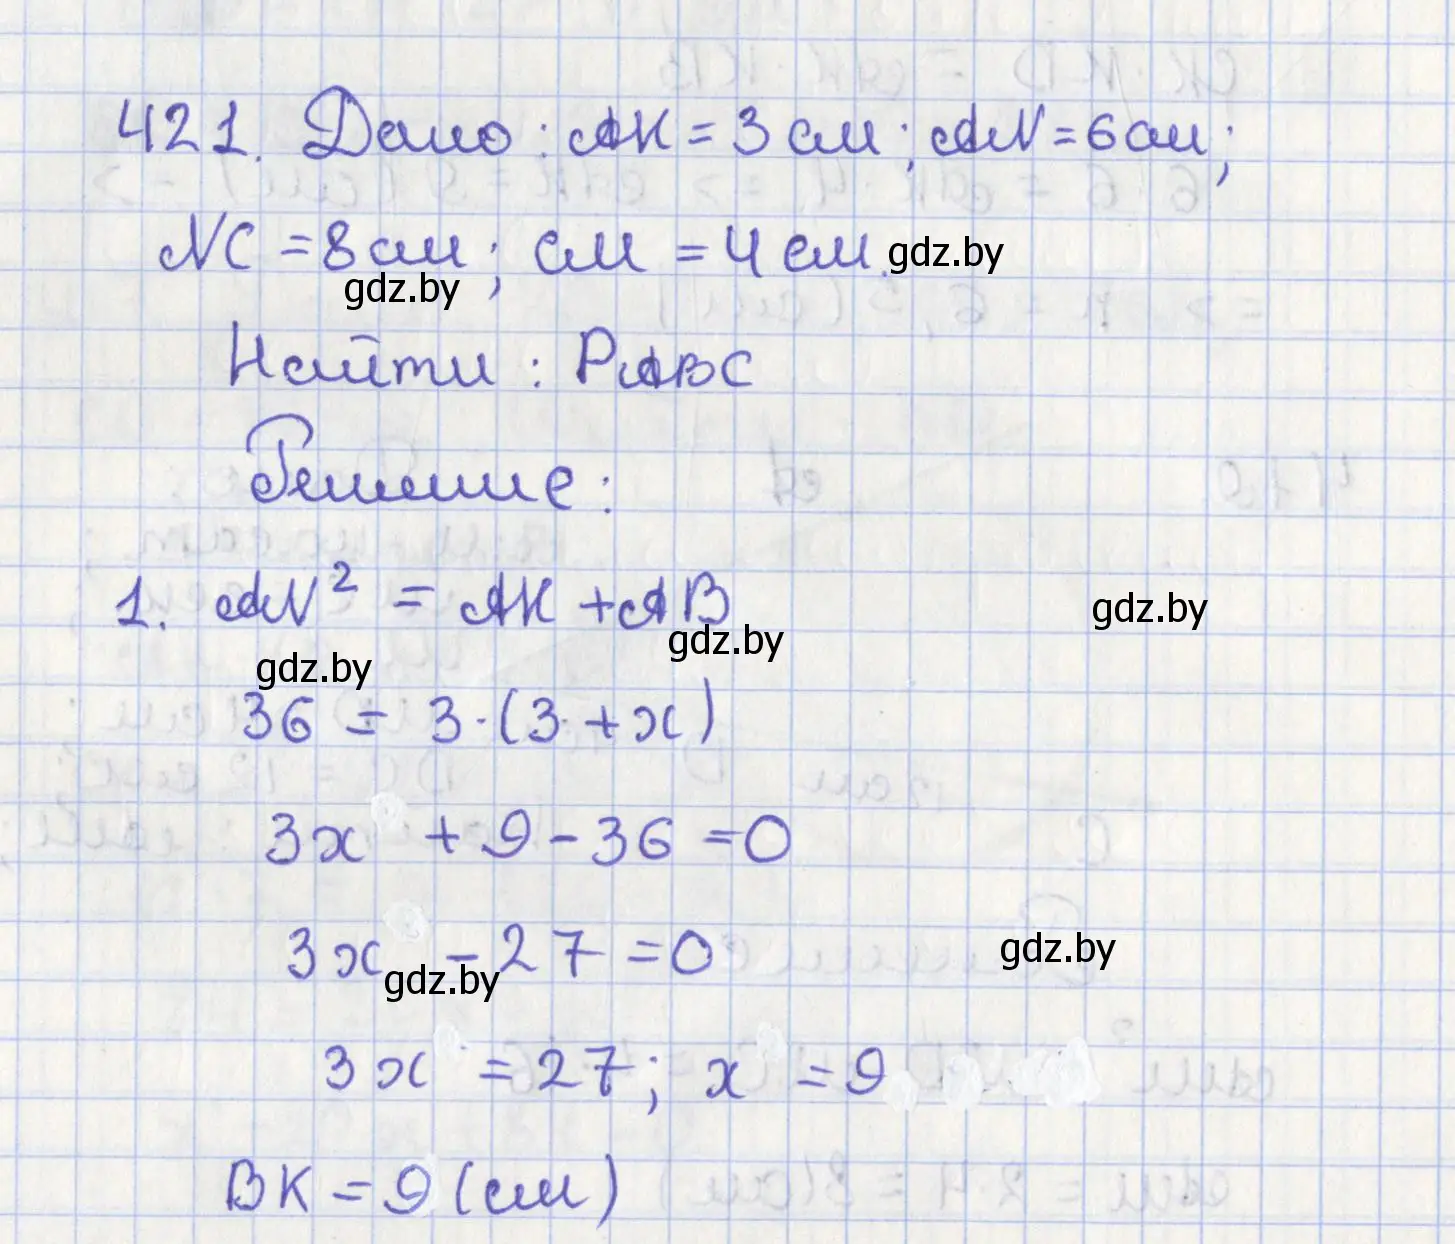 421. Дано: АК = 3 см; AN = 6 см;
NC = 8 см; СМ = 4 см. gdz.by
gdz.by
Найти: PABC
Решение:
1. AN² = AK + AB gdz.by
gdz.by
gdz.by
36 = 3·(3 + x)
3x + 9 - 36 = 0
3x - 27 = 0 gdz.by
gdz.by
3x = 27; x = 9
BK = 9 (см)